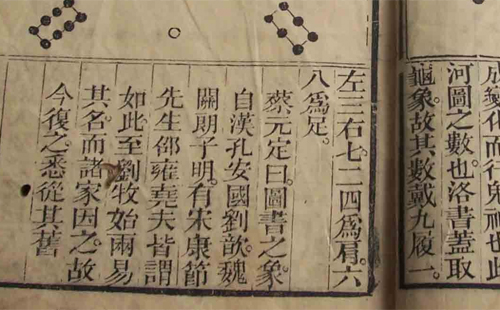 成變化而行鬼神也此
河圖之數也洛書蓋取
龜象。故其數戴九履一。
左三右七二四爲肩。六
八爲足。
蔡元定曰圖書之象
自漢孔安國劉歆魏
關朗子明。有宋康節
先生邵雍堯夫皆謂
如此至劉牧始兩易
其名而諸家因之故
今復之。悉從其舊